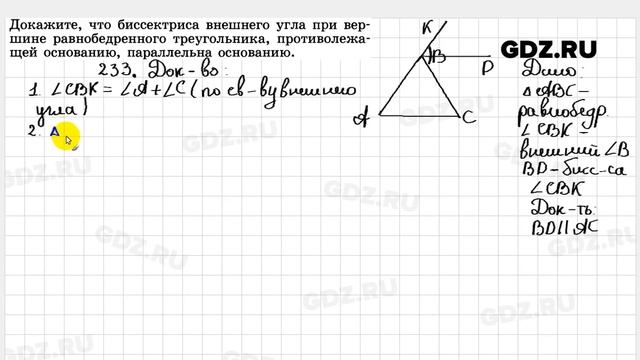 Докажите, что биссектриса внешнего угла при вер-
шине равнобедренного треугольника, противолежа-
щей основанию, параллельна основанию.
233. Док-во:
1. ∠CBK = ∠A+∠C (по св-ву внешнего
угла)
2. Δ
K
B
D
A
C
GDZ.RU
Дано:
ΔABC-
равнобедр.
∠CBK -
внешний ∠B
BD-бисс-са
∠CBK
Док-ть:
BD||AC